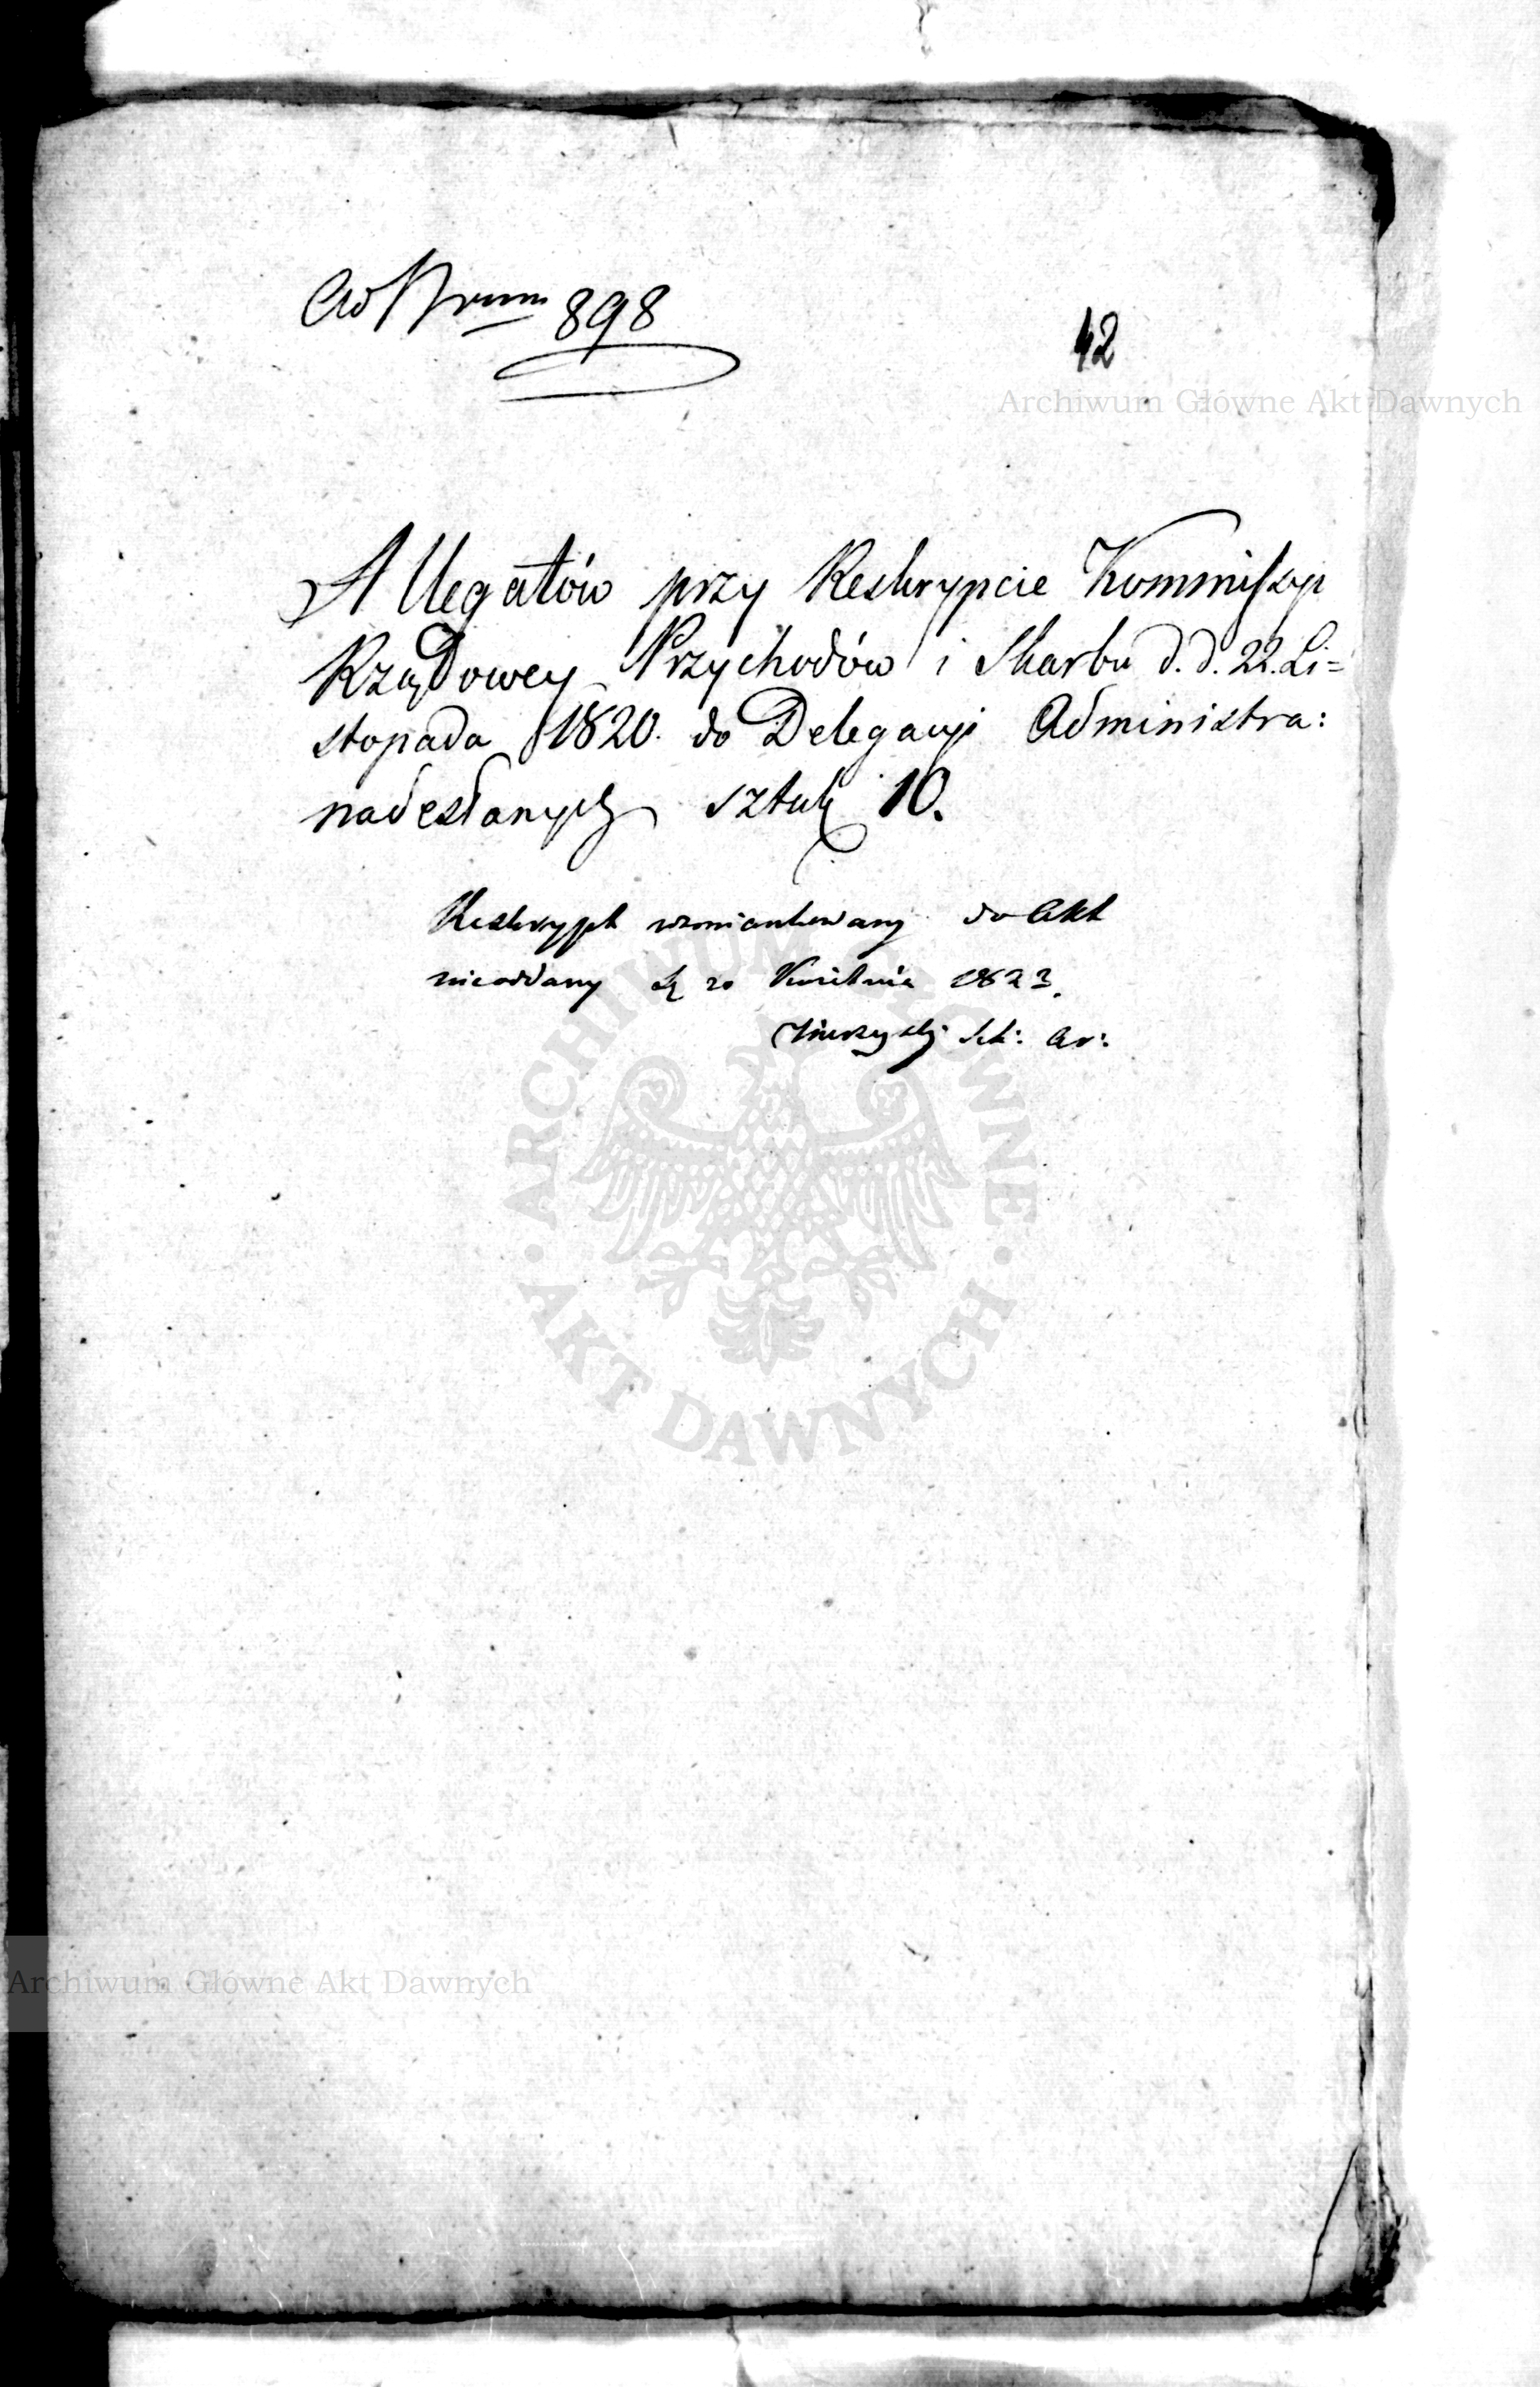 Ad Nrum 898
42
Archiwum Główne Akt Dawnych
Allegatów przy Reskrypcie Kommissyi
Rządowey Przychodów i Skarbu d. d. 22. Li=
stopada 1820. do Delegacyi Administra:
nadesłanych sztuk 10.
Reskrypt wzmiankowany do Akt
nieoddany 20 Kwietnia 1823.
Sek: Ar:
ARCHIWUM GŁÓWNE
· AKT DAWNYCH ·
Archiwum Główne Akt Dawnych